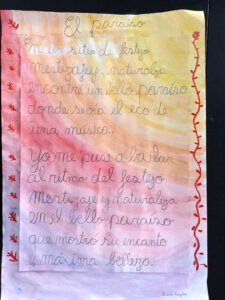 El paraiso
En un sitio de festejo
mestizaje y naturaleza
encontre un bello paraiso
donde sevia el eco de
una musica.
Yo me puse a bailar
al ritmo del festejo
mestizaje y naturaleza
en el bello paraiso
que mostro su encanto
y máxima belleza.